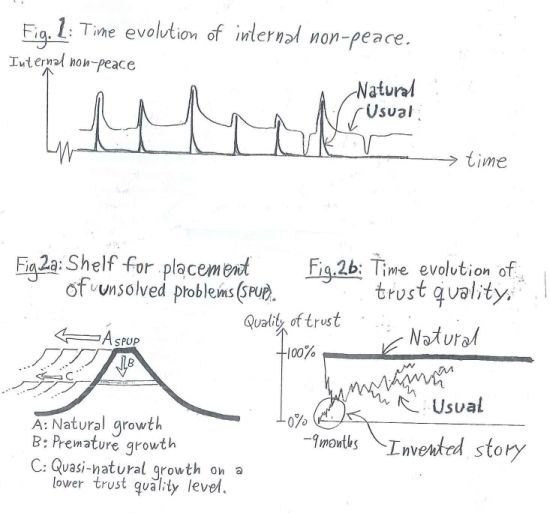 Fig. 1: Time evolution of internal non-peace.
Internal non-peace
Natural
Usual
time
Fig 2a: Shelf for placement
of unsolved problems (SPUP).
A SPUP
B
C
A: Natural growth
B: Premature growth
C: Quasi-natural growth on a
lower trust quality level.
Fig. 2b: Time evolution of
trust quality.
Quality of trust
100%
Natural
Usual
0%
-9months
Invented story